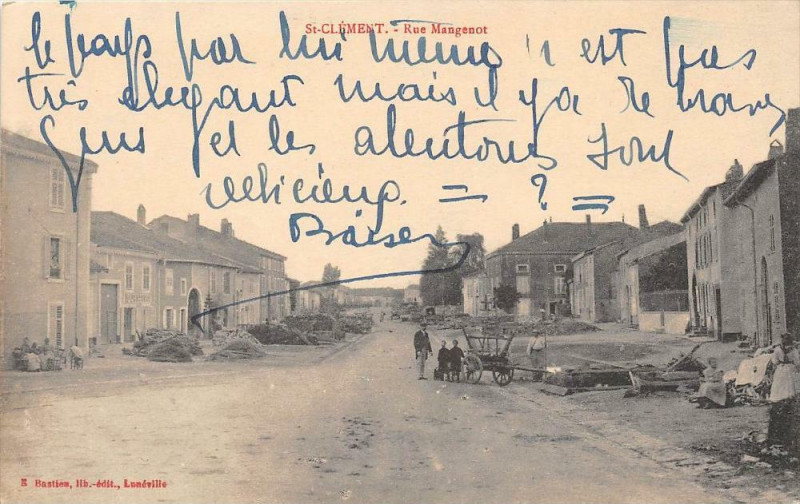 St-CLÉMENT. - Rue Mangenot
le pays par lui même n'est pas
très élégant mais il y a de braves
gens et les alentours sont
délicieux. = ? =
Baiser
E Bastien, lib.-édit., Lunéville